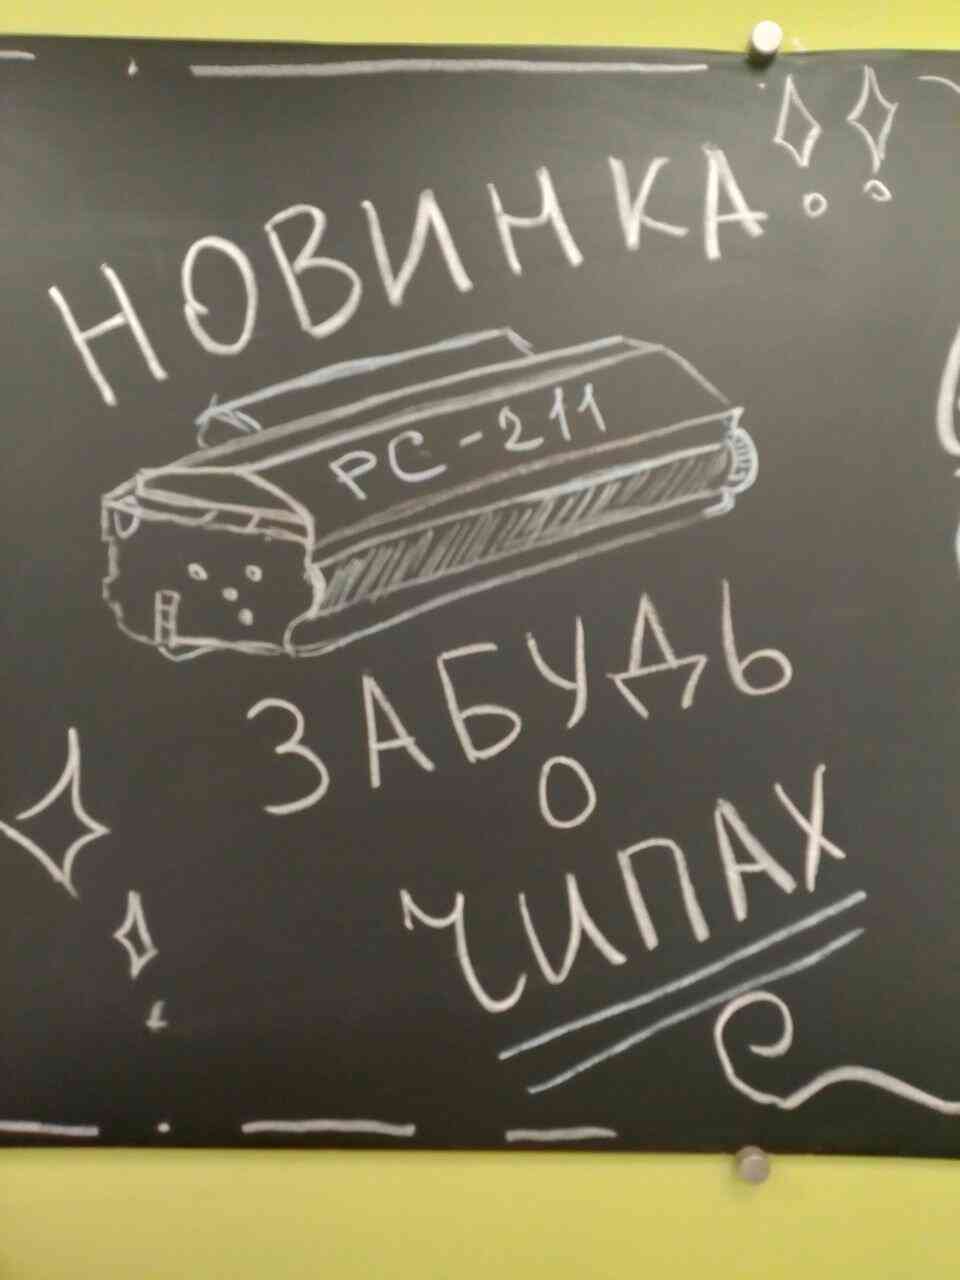 НОВИНКА!!
PC-211
ЗАБУДЬ
О
ЧИПАХ